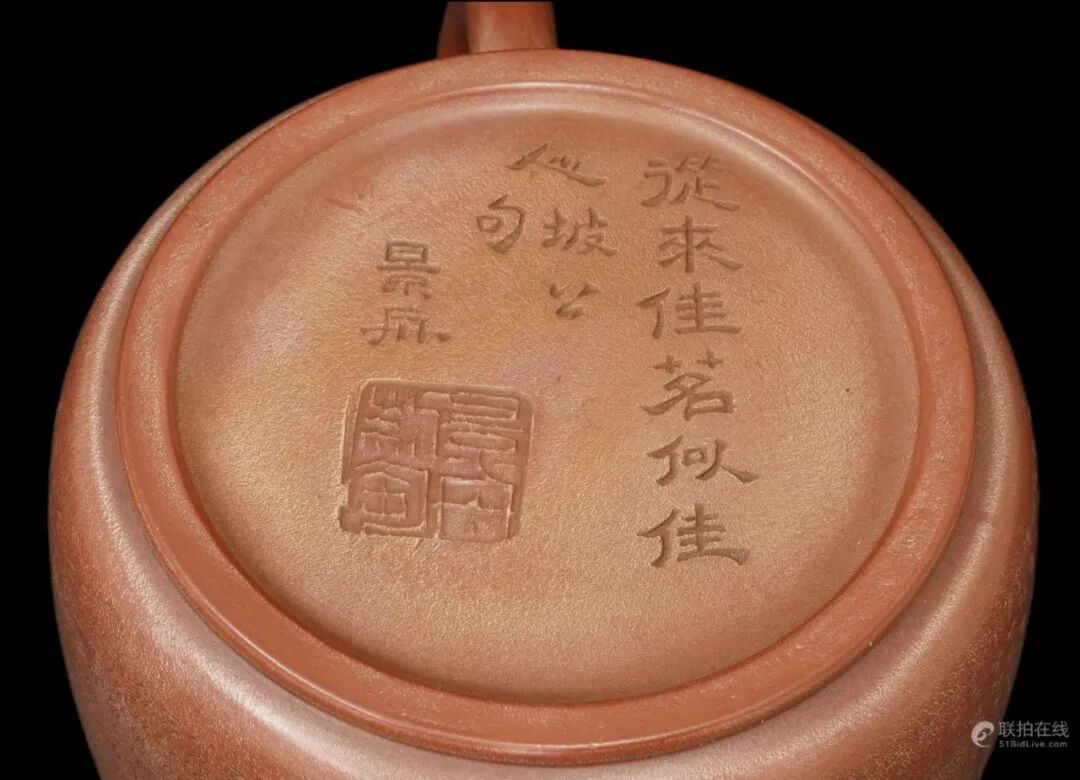 從來佳茗似佳
人坡公
句
景舟
联拍在线
51BidLive.com